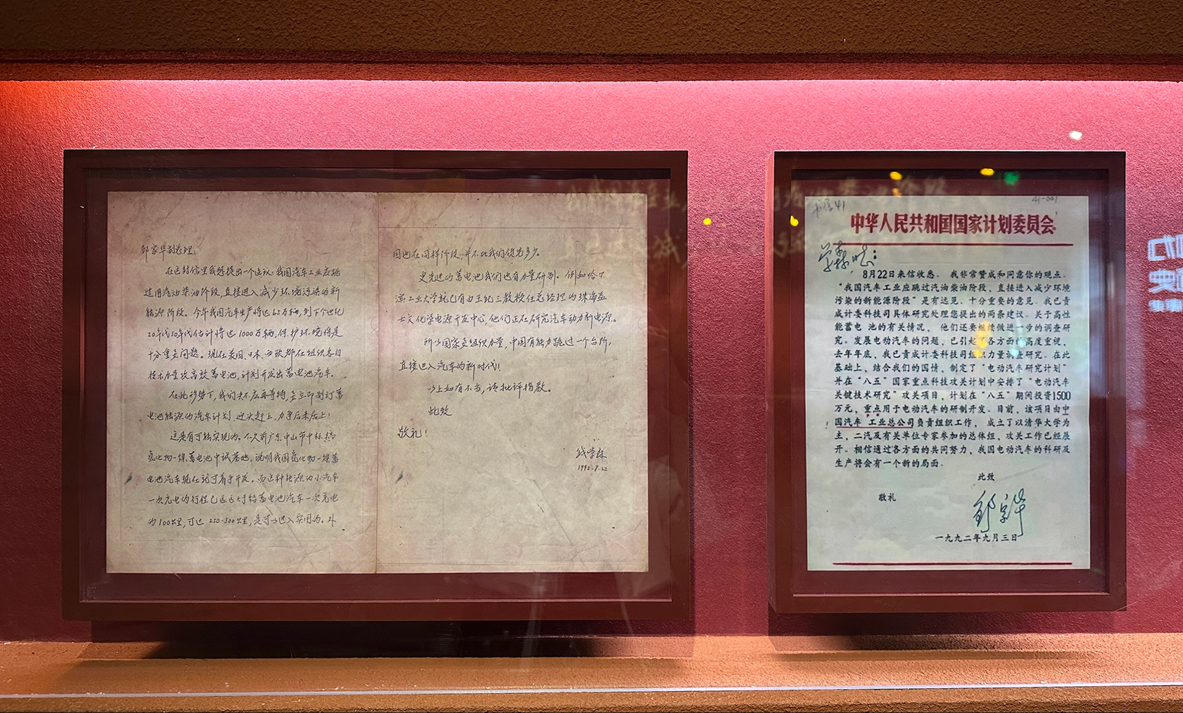 邹家华副总理:
在这封信里我想提出一个建议:我国汽车工业应跳
过用汽油柴油阶段,直接进入减少环境污染的新
能源阶段。今年我国汽车生产将达
20年代10年代估计将达1000万辆,保护环境将是
十分重要问题。现在美国、日本、西欧都在组织各自
技术力量攻高效蓄电池,计划开发出蓄电池汽车。
在此形势下,我们决不应再等待,要立即制订蓄
电池能源的汽车计划,迎头赶上,力争后来居上!
这是有可能实现的。不久前广东中山市中林
氢化物-镍蓄电池中试基地,说明我国氢化物-镍蓄
电池汽车现在就可着手开发。而这种能源的小汽车
一次充电的行程已远远大于铅蓄电池汽车一次充电
的100公里,可达 250-300公里,是可以进入实用的。外
国也在同样阶段,并不比我们领先多少。
更先进的蓄电池我们也有力量研制。例如哈尔
滨工业大学就已有
士文化学电源开发中心,他们正在研究汽车动力新电源。
所以国家要组织力量,中国有能力跳过一个台阶,
直接进入汽车的新时代!
以上如有不当,请批评指教。
此致
敬礼!
钱学森
1992.8.22
中华人民共和国国家计划委员会
学森同志:
8月22日来信收悉。我非常赞成和同意你的观点。
“我国汽车工业应跳过汽油柴油阶段,直接进入减少环境
污染的新能源阶段”是有远见、十分重要的意见。我已责
成计委科技司具体研究处理您提出的两条建议。关于高性
能蓄电 池的有关情况, 他们还要继续做进一步的调查研
究。发展电动汽车的问题,已引起了各方面的高度重视,
去年年底,我已责成计委科技司组织力量调查研究。在此
基础上,结合我们的国情,制定了“电动汽车研究计划”
并在“八五”国家重点科技攻关计划中安排了“电动汽车
关键技术研究”攻关项目,计划在“八五”期间投资1500
万元,重点用于电动汽车的研制开发。目前,该项目由中
国汽车 工业总公司负责组织工作, 成立了以清华大学为
主,二汽及有关单位专家参加的总体组,攻关工作已经展
开。相信通过各方面的共同努力,我国电动汽车的科研及
生产将会有一个新的局面。
此致
敬礼
邹家华
一九九二年九月三日